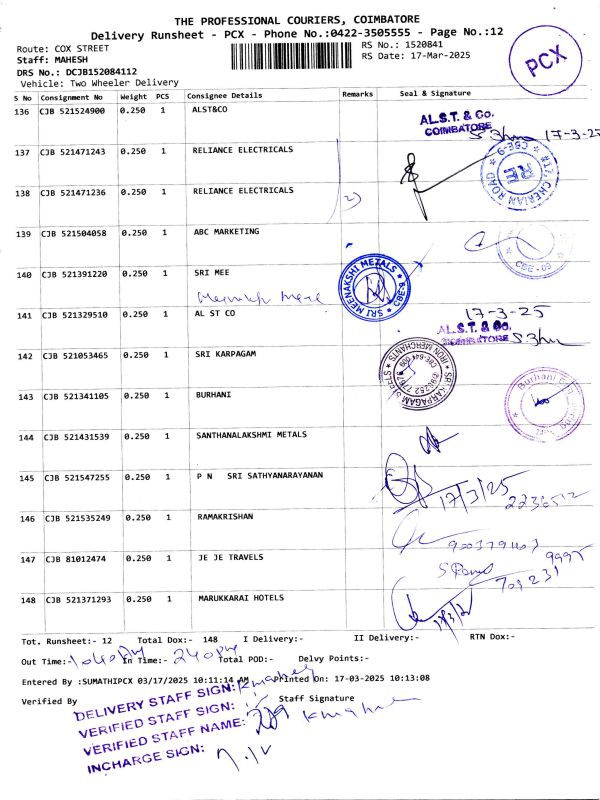 THE PROFESSIONAL COURIERS, COIMBATORE
Delivery Runsheet - PCX - Phone No.:0422-3505555 - Page No.:12
Route: COX STREET
RS No.: 1520841
Staff: MAHESH
RS Date: 17-Mar-2025
DRS No.: DCJB152084112
Vehicle: Two Wheeler Delivery
PCX
S No Consignment No Weight PCS Consignee Details Remarks Seal & Signature
136 CJB 521524900 0.250 1 ALST&CO
AL.S.T. & Co.
COIMBATORE
17-3-25
137 CJB 521471243 0.250 1 RELIANCE ELECTRICALS
RE
CHERIAN ROAD
CBE-9
138 CJB 521471236 0.250 1 RELIANCE ELECTRICALS
139 CJB 521504058 0.250 1 ABC MARKETING
CBE-09
140 CJB 521391220 0.250 1 SRI MEE
SRI MEENAKSHI METALS
CBE-9
141 CJB 521329510 0.250 1 AL ST CO
17-3-25
AL.S.T. & Co.
COIMBATORE
142 CJB 521053465 0.250 1 SRI KARPAGAM
SRI KARPAGAM STEELS
IRON MERCHANTS
143 CJB 521341105 0.250 1 BURHANI
Burhani
144 CJB 521431539 0.250 1 SANTHANALAKSHMI METALS
145 CJB 521547255 0.250 1 P N SRI SATHYANARAYANAN
17/3/25
2236512
146 CJB 521535249 0.250 1 RAMAKRISHAN
147 CJB 81012474 0.250 1 JE JE TRAVELS
9995
701231
148 CJB 521371293 0.250 1 MARUKKARAI HOTELS
Tot. Runsheet:- 12 Total Dox:- 148 I Delivery:- II Delivery:- RTN Dox:-
Out Time:- 1040AM In Time:- 240PM Total POD:- Delvy Points:-
Entered By :SUMATHIPCX 03/17/2025 10:11:14 AM Printed On: 17-03-2025 10:13:08
Verified By Staff Signature
DELIVERY STAFF SIGN:
VERIFIED STAFF SIGN:
VERIFIED STAFF NAME:
INCHARGE SIGN: